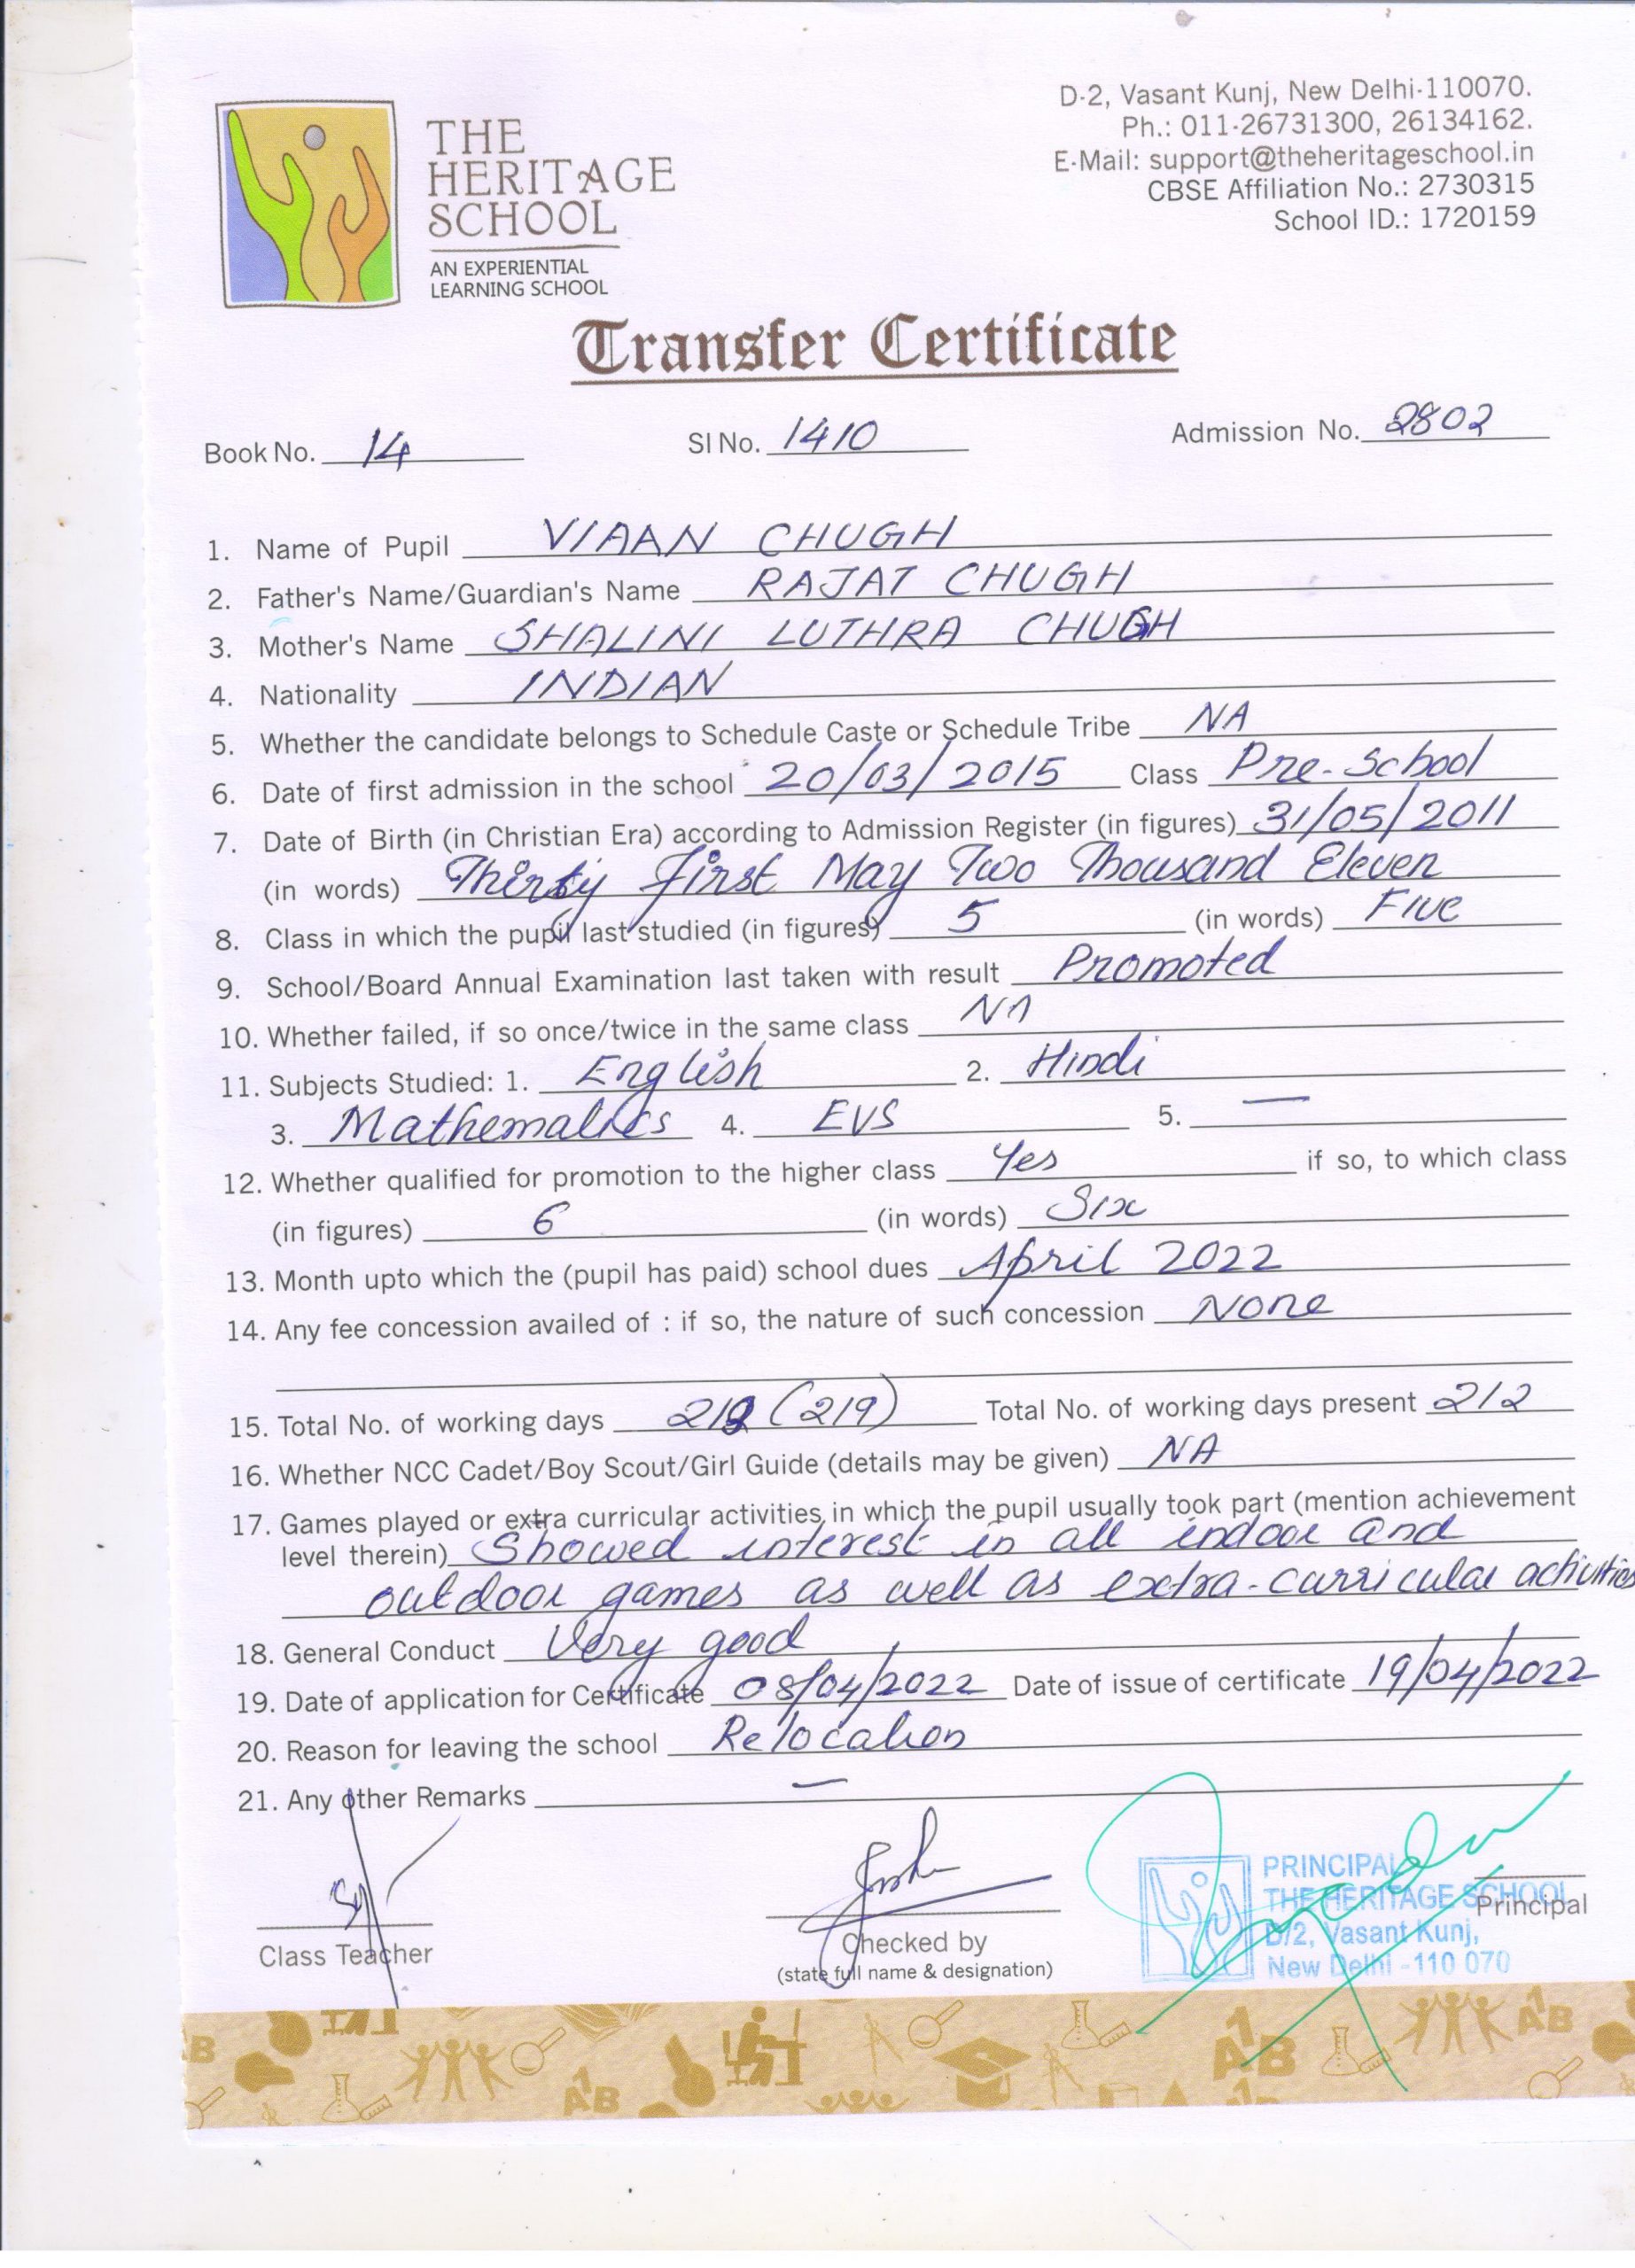 THE
HERITAGE
SCHOOL
AN EXPERIENTIAL
LEARNING SCHOOL
D-2, Vasant Kunj, New Delhi-110070.
Ph.: 011-26731300, 26134162.
E-Mail: support@theheritageschool.in
CBSE Affiliation No.: 2730315
School ID.: 1720159
Transfer Certificate
Book No. 14 SI No. 1410 Admission No. 2802
1. Name of Pupil VIAAN CHUGH
2. Father's Name/Guardian's Name RAJAT CHUGH
3. Mother's Name SHALINI LUTHRA CHUGH
4. Nationality INDIAN
5. Whether the candidate belongs to Schedule Caste or Schedule Tribe NA
6. Date of first admission in the school 20/03/2015 Class Pre-School
7. Date of Birth (in Christian Era) according to Admission Register (in figures) 31/05/2011
(in words) Thirty First May Two Thousand Eleven
8. Class in which the pupil last studied (in figures) 5 (in words) Five
9. School/Board Annual Examination last taken with result Promoted
10. Whether failed, if so once/twice in the same class NA
11. Subjects Studied: 1. English 2. Hindi
3. Mathematics 4. EVS 5. —
12. Whether qualified for promotion to the higher class Yes if so, to which class
(in figures) 6 (in words) Six
13. Month upto which the (pupil has paid) school dues April 2022
14. Any fee concession availed of : if so, the nature of such concession None
15. Total No. of working days (219) Total No. of working days present 212
16. Whether NCC Cadet/Boy Scout/Girl Guide (details may be given) NA
17. Games played or extra curricular activities in which the pupil usually took part (mention achievement
level therein) Showed interest in all indoor and
outdoor games as well as extra-curricular activities
18. General Conduct Very good
19. Date of application for Certificate 08/04/2022 Date of issue of certificate 19/04/2022
20. Reason for leaving the school Relocation
21. Any other Remarks —
Class Teacher
Checked by
(state full name & designation)
PRINCIPAL
THE HERITAGE SCHOOL
D/2, Vasant Kunj,
New Delhi -110 070
Principal